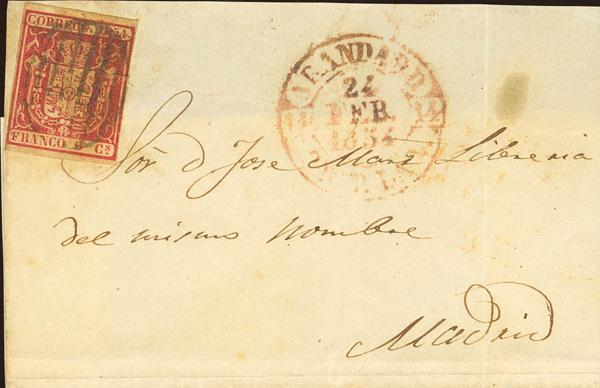 CORREOS 1854.
FRANCO 6 Cs
ARANDA D.D.
24
FEB.
1854
Sor. d Jose Marz Libreria
del mismo nombre
Madrid